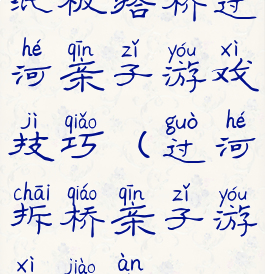 纸板搭桥过
hé qīn zǐ yóu xì
河亲子游戏
jì qiǎo guò hé
技巧(过河
chāi qiáo qīn zǐ yóu
拆桥亲子游
xì jiào àn